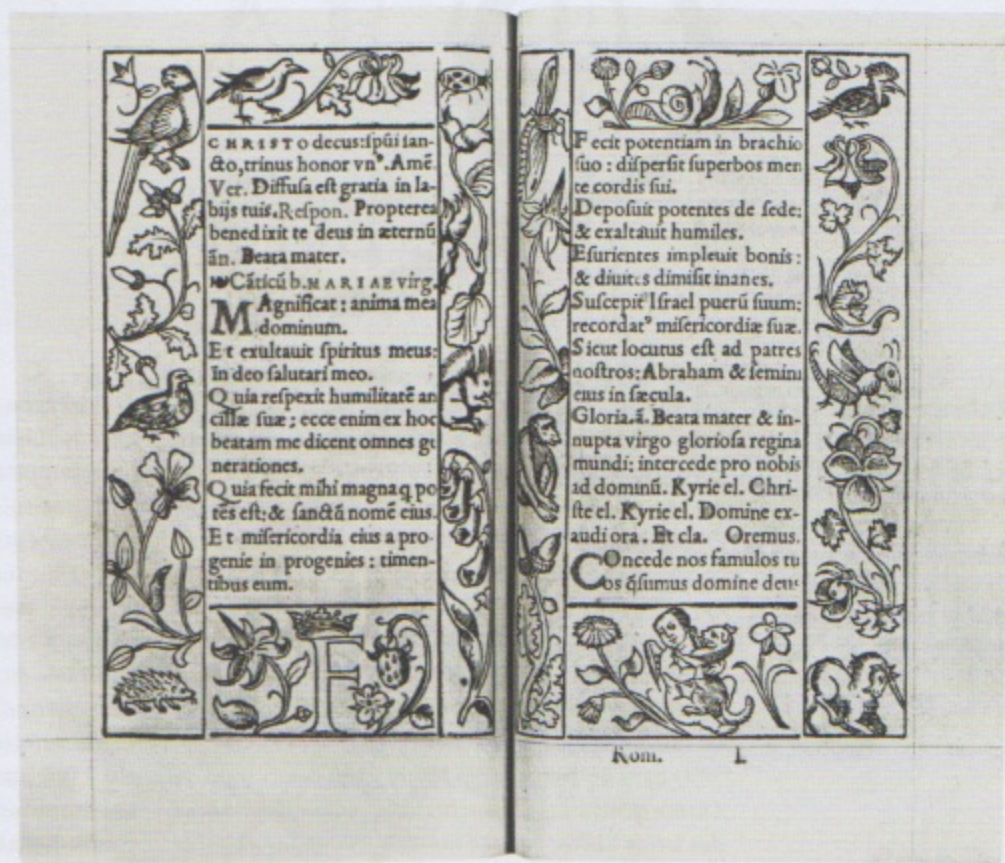 CHRISTO decus:ſpũi ſan-
cto,trinus honor vnꝰ. Amẽ.
Ver. Diffuſa eſt gratia in la-
bijs tuis.Reſpon. Propterea
benedixit te deus in æternũ
ãn. Beata mater.
Cãticũ b.MARIAE virg.
MAgnificat: anima mea
dominum.
Et exultauit ſpiritus meus:
in deo ſalutari meo.
Quia reſpexit humilitatẽ an
cillæ ſuæ; ecce enim ex hoc
beatam me dicent omnes ge
nerationes.
Quia fecit mihi magna q po
tẽs eſt: & ſanctũ nomẽ eius.
Et miſericordia eius a pro-
genie in progenies: timen-
tibus eum.
F
Fecit potentiam in brachio
ſuo: diſperſit ſuperbos men
te cordis ſui.
Depoſuit potentes de ſede:
& exaltauit humiles.
Eſurientes impleuit bonis:
& diuites dimiſit inanes.
Suſcepit Iſrael puerũ ſuum:
recordatꝰ miſericordiæ ſuæ.
Sicut locutus eſt ad patres
noſtros: Abraham & ſemini
eius in ſæcula.
Gloria.ã. Beata mater & in-
nupta virgo glorioſa regina
mundi: intercede pro nobis
ad dominũ. Kyrie el. Chri-
ſte el. Kyrie el. Domine ex-
audi ora. Et cla. Oremus.
COncede nos famulos tu
os q̃ſumus domine deus
Rom. L